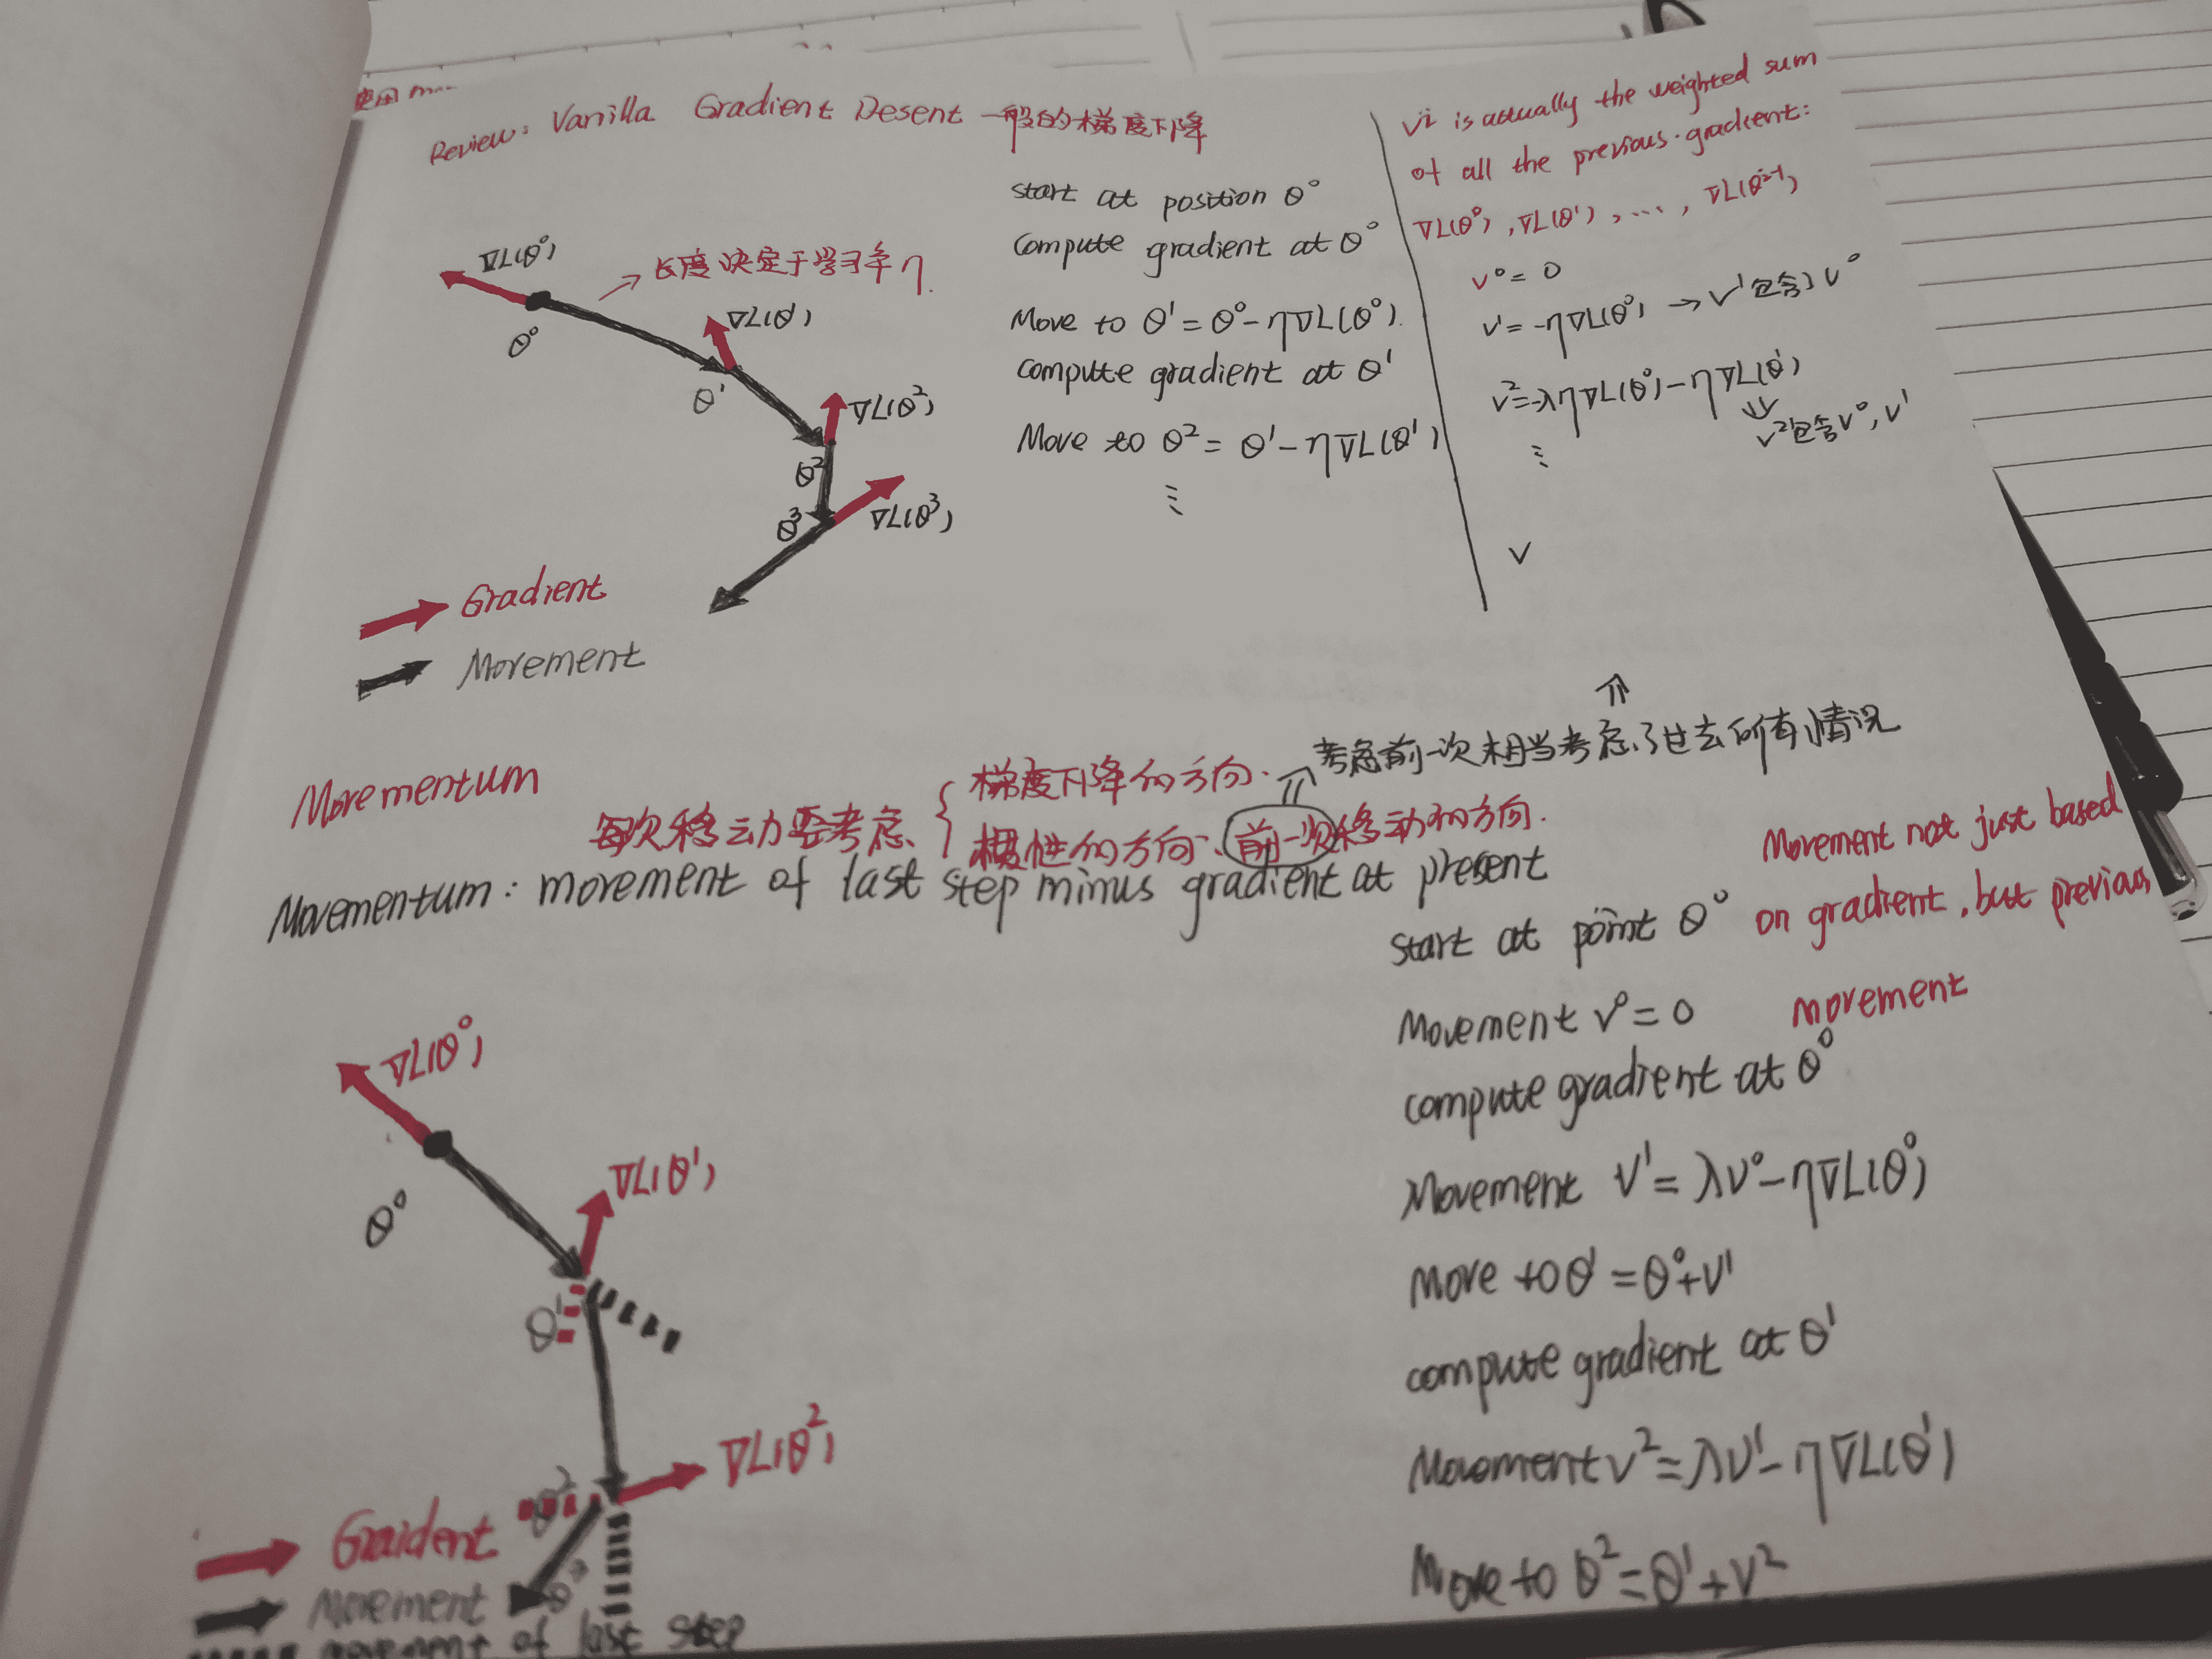 Review: Vanilla Gradient Desent 一般的梯度下降
∇L(θ⁰)
长度决定于学习率η.
θ⁰
∇L(θ¹)
θ¹
∇L(θ²)
θ²
θ³
∇L(θ³)
Gradient
Movement
start at position θ⁰
compute gradient at θ⁰
Move to θ¹ = θ⁰ - η∇L(θ⁰).
compute gradient at θ¹
Move to θ² = θ¹ - η∇L(θ¹)
⋮
vⁱ is actually the weighted sum
of all the previous gradient:
∇L(θ⁰), ∇L(θ¹), ..., ∇L(θⁱ⁻¹)
v⁰ = 0
v¹ = -η∇L(θ⁰) → v¹包含了v⁰
v² = -λη∇L(θ⁰) - η∇L(θ¹)
v²包含v⁰, v¹
⋮
v
考虑前一次相当考虑了过去所有情况
Morementum
每次移动要考虑 { 梯度下降的方向.
惯性的方向、前一次移动的方向.
Movementum: movement of last step minus gradient at present
Movement not just based
on gradient, but previous
movement
start at point θ⁰
Movement v⁰ = 0
compute gradient at θ⁰
Movement v¹ = λv⁰ - η∇L(θ⁰)
Move to θ¹ = θ⁰ + v¹
compute gradient at θ¹
Movement v² = λv¹ - η∇L(θ¹)
Move to θ² = θ¹ + v²
∇L(θ⁰)
θ⁰
∇L(θ¹)
θ¹
∇L(θ²)
θ²
Graident
Movement
movement of last step